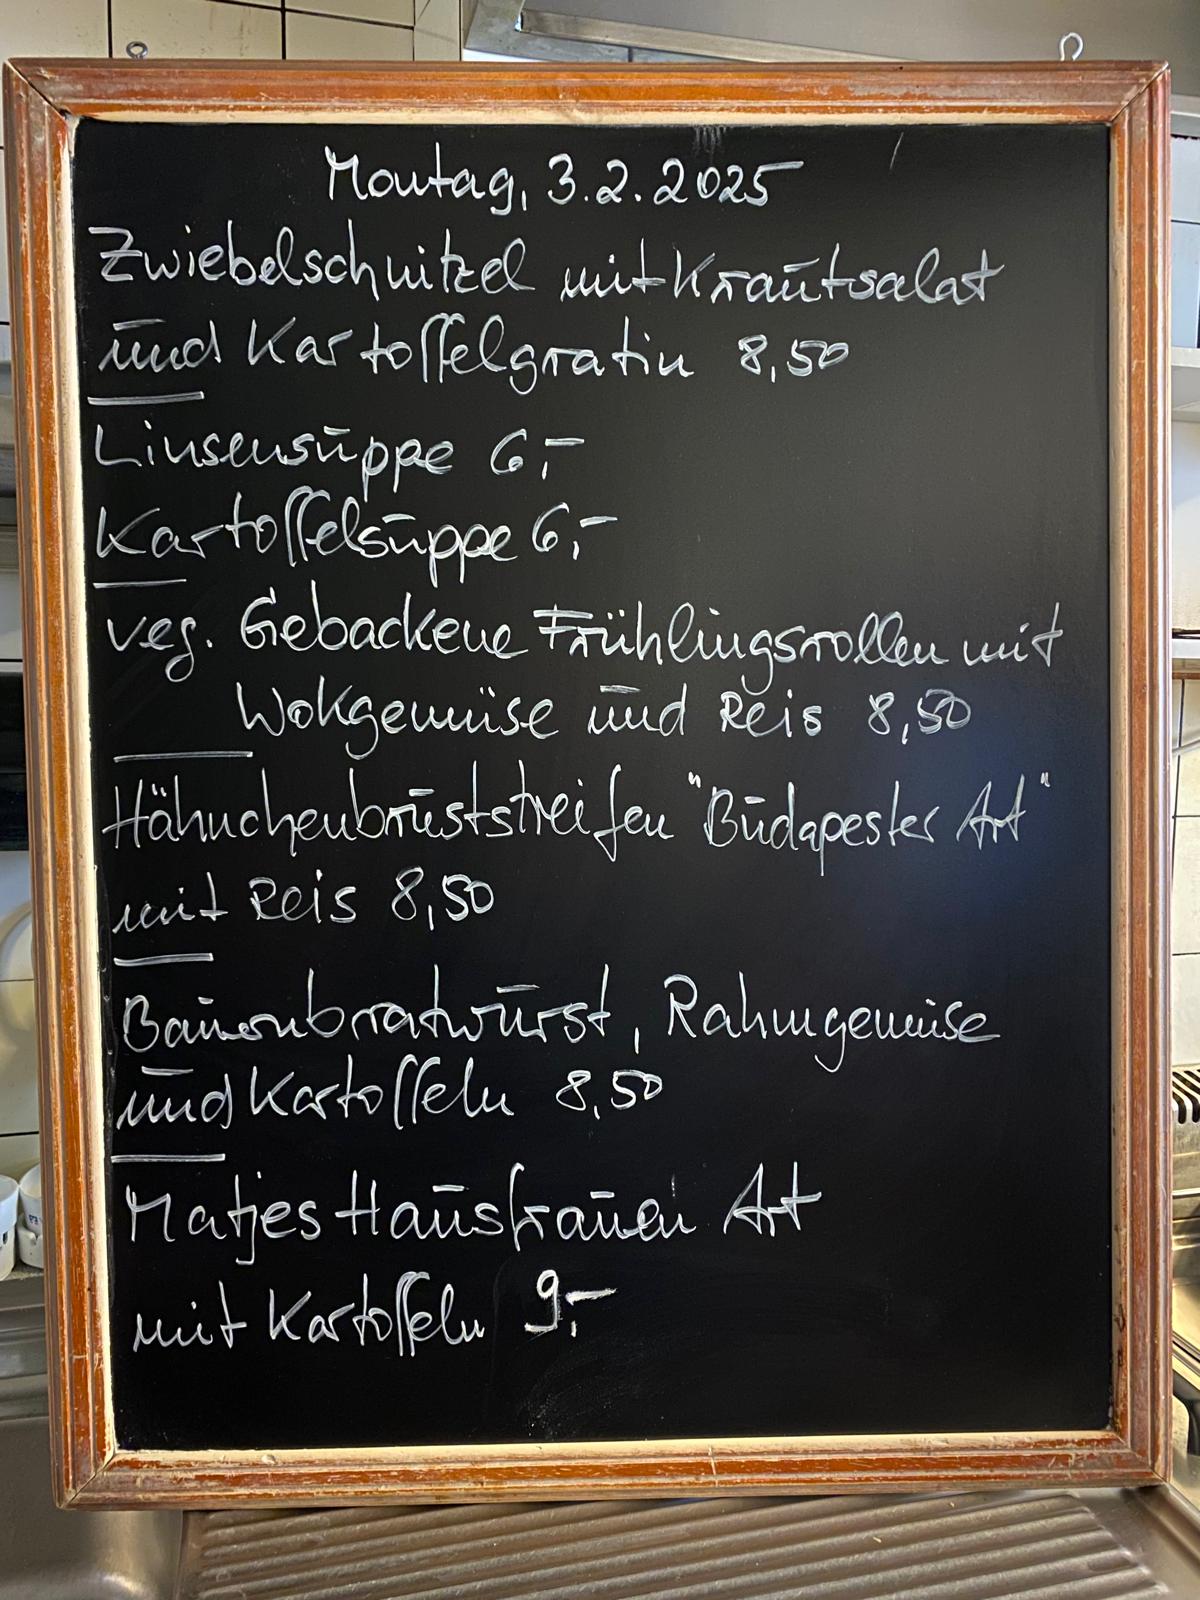 Montag, 3.2.2025
Zwiebelschnitzel mit Krautsalat
und Kartoffelgratin 8,50
Linsensuppe 6,-
Kartoffelsuppe 6,-
veg. Gebackene Frühlingsrollen mit
Wokgemüse und Reis 8,50
Hähnchenbruststreifen "Budapester Art"
mit Reis 8,50
Bauernbratwurst, Rahmgemüse
und Kartoffeln 8,50
Matjes Hausfrauen Art
mit Kartoffeln 9,-